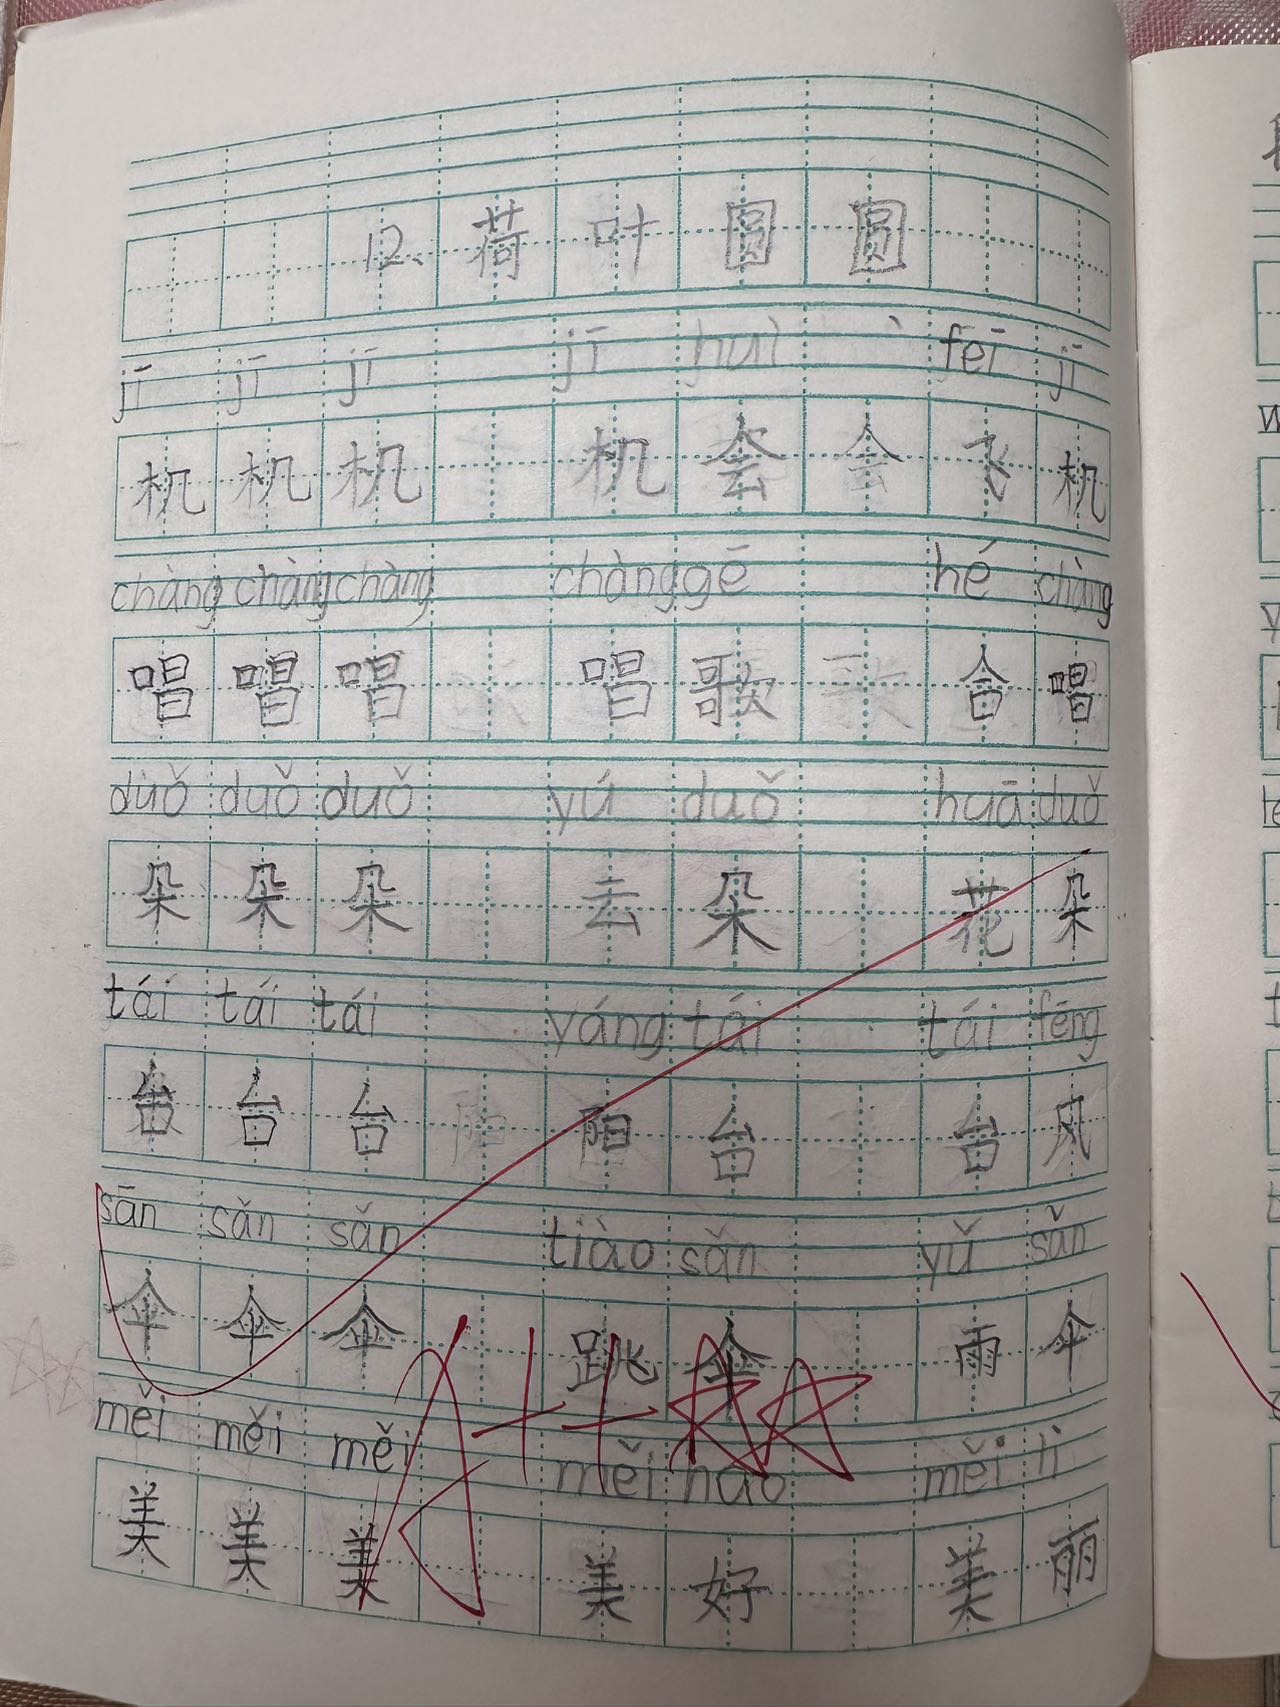 12、荷叶圆圆
jī jī jī jī huì fēi jī
机 机 机 机会 飞机
chàng chàng chàng chàng gē hé chàng
唱 唱 唱 唱歌 合唱
duǒ duǒ duǒ yú duǒ huā duǒ
朵 朵 朵 云朵 花朵
tái tái tái yáng tái tái fēng
台 台 台 阳台 台风
sān sǎn sǎn tiào sǎn yǔ sǎn
伞 伞 伞 跳伞 雨伞
měi měi měi měi hǎo měi lì
美 美 美 美好 美丽